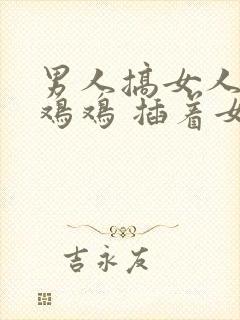 男人搞女人
鸡鸡 插着女
吉永友